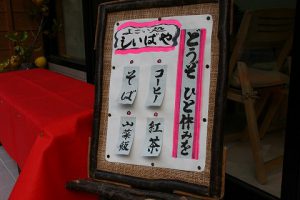 どうぞ ひと休みを
よこい処
しいばや
コーヒー
そば
紅茶
山菜飯